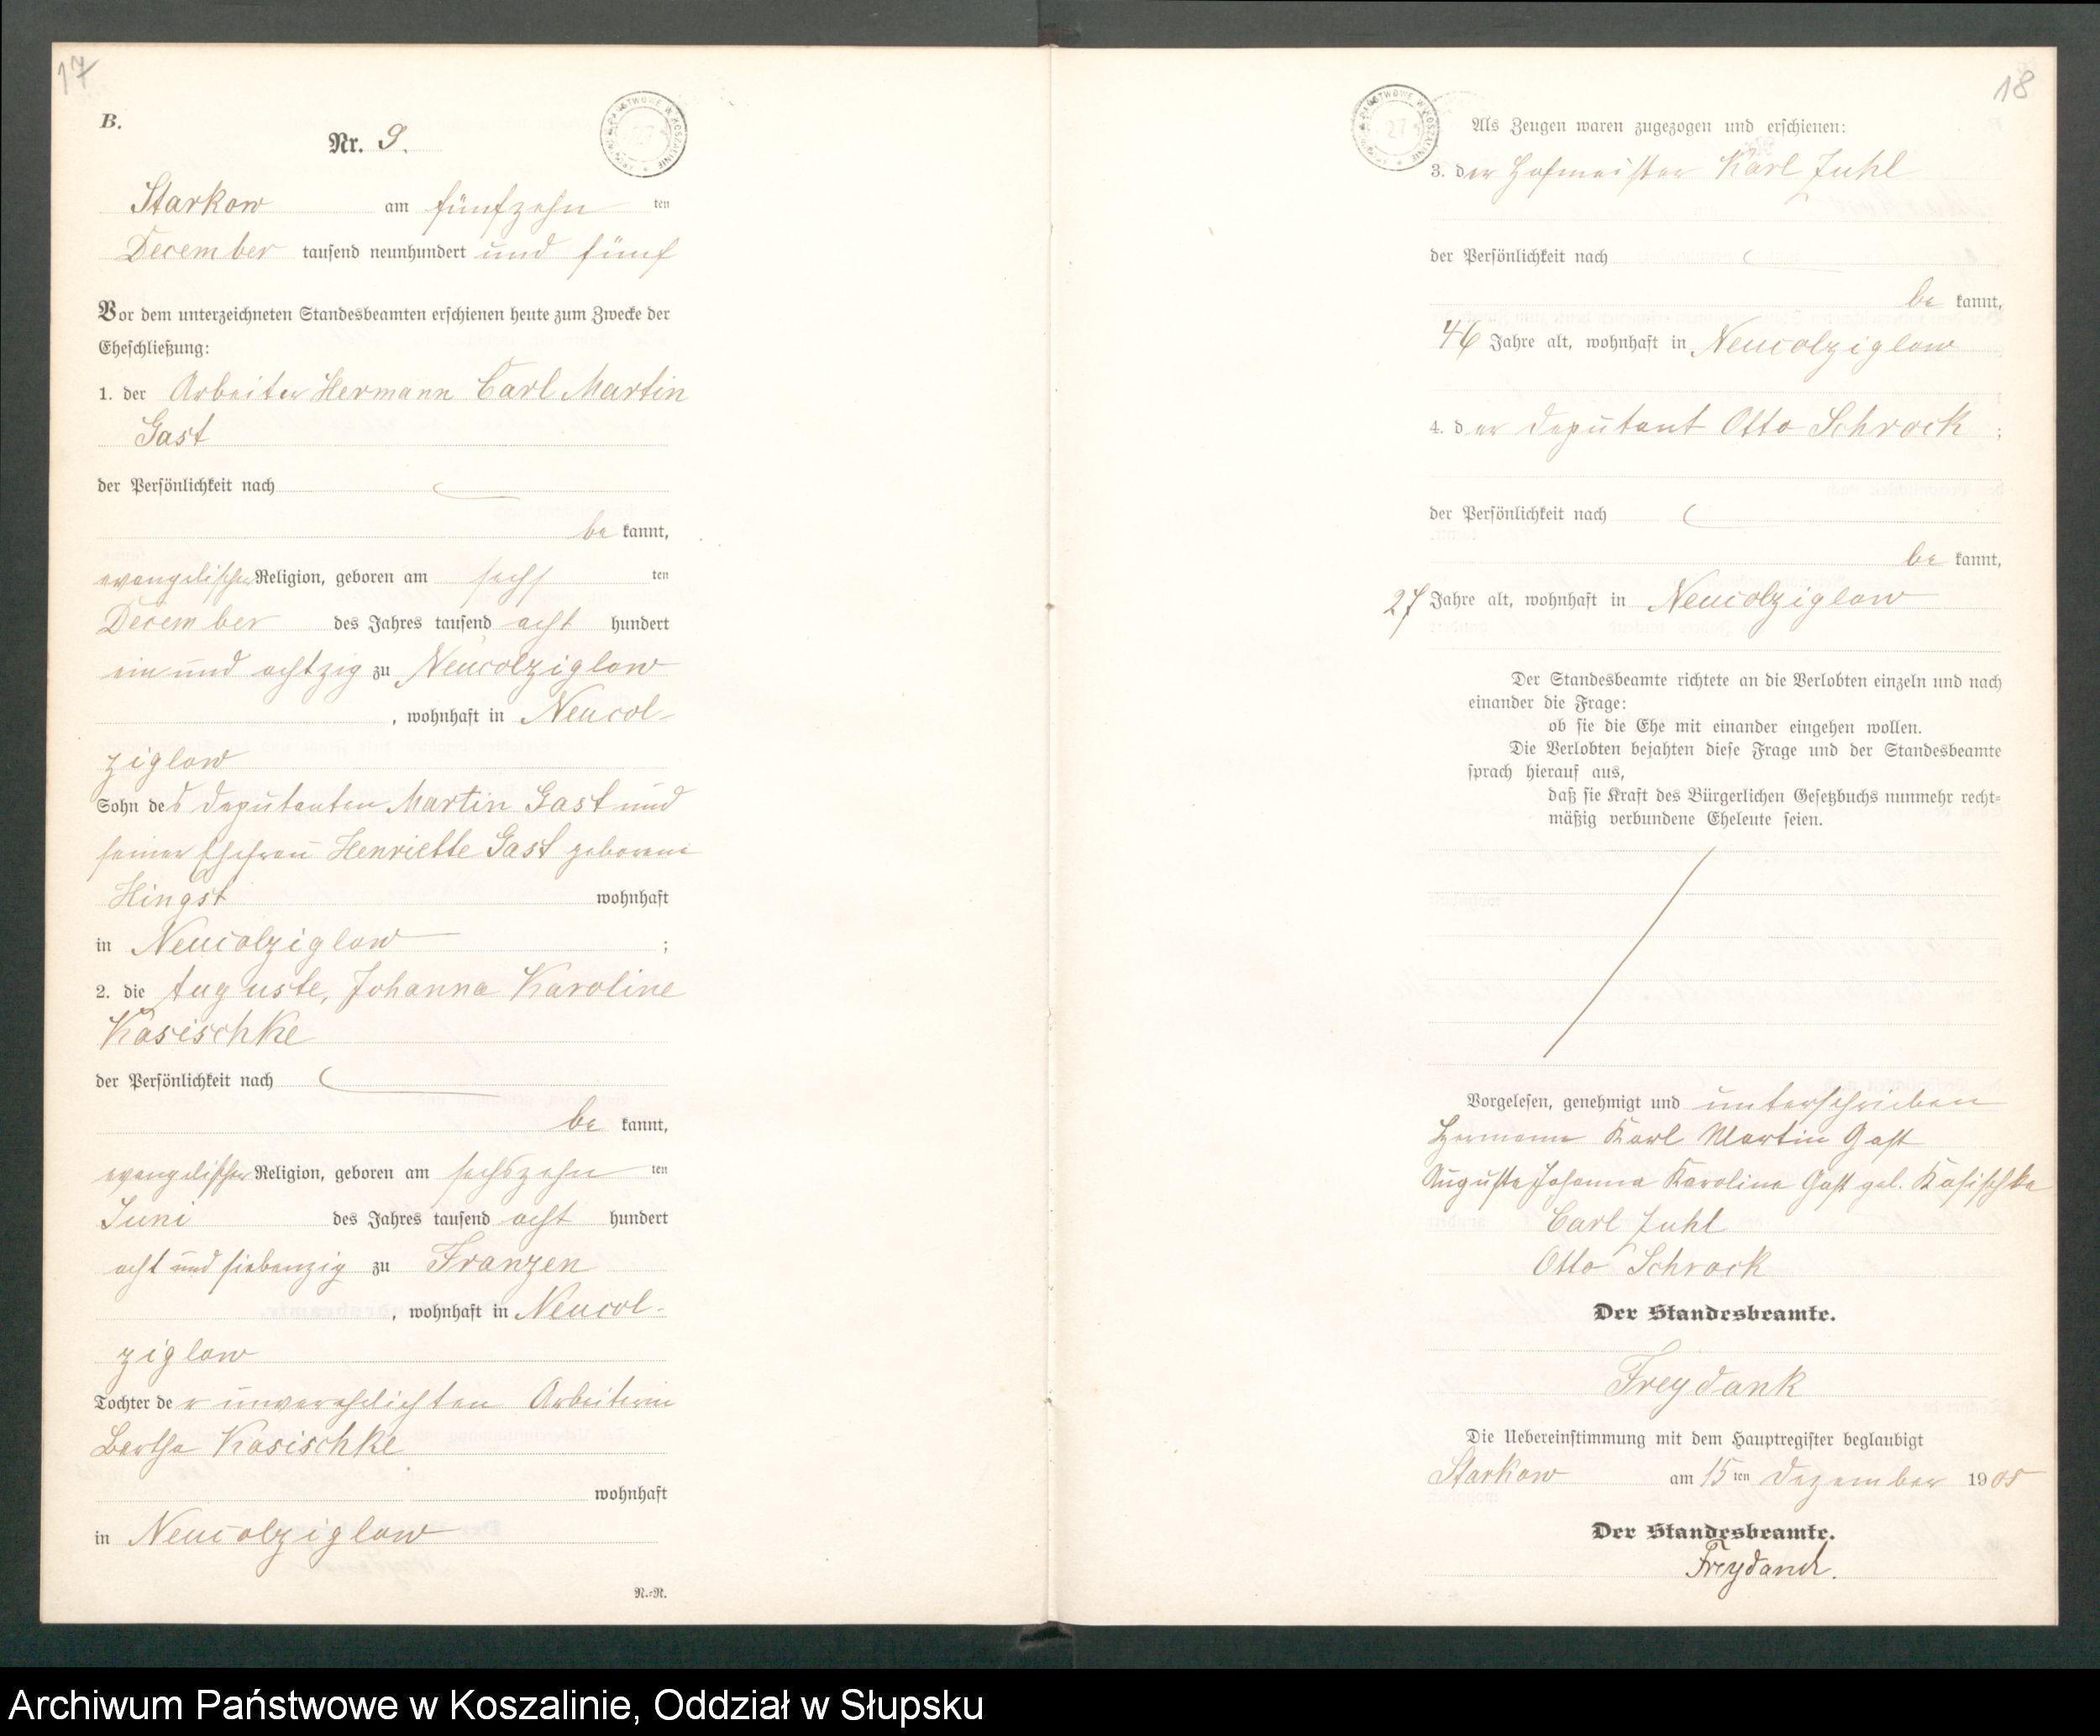 17
B.
Nr. 9.
Starkow am fünfzehn ten
December tausend neunhundert und fünf
Vor dem unterzeichneten Standesbeamten erschienen heute zum Zwecke der
Eheschließung:
1. der Arbeiter Hermann Carl Martin
Gast
der Persönlichkeit nach
be kannt,
evangelischer Religion, geboren am sechs ten
December des Jahres tausend acht hundert
ein und achtzig zu Neucolziglow
, wohnhaft in Neucol-
ziglow
Sohn des Deputanten Martin Gast und
seiner Ehefrau Henriette Gast geborene
Hingst wohnhaft
in Neucolziglow ;
2. die Auguste, Johanna Karoline
Kasischke
der Persönlichkeit nach
be kannt,
evangelischer Religion, geboren am sechszehn ten
Juni des Jahres tausend acht hundert
acht und siebenzig zu Franzen
, wohnhaft in Neucol-
ziglow
Tochter der unverehelichten Arbeiterin
Bertha Kasischke
wohnhaft
in Neucolziglow
N.-N.
18
Als Zeugen waren zugezogen und erschienen:
3. der Hofmeister Karl Juhl
der Persönlichkeit nach
be kannt,
46 Jahre alt, wohnhaft in Neucolziglow
4. der Deputant Otto Schrock ;
der Persönlichkeit nach
be kannt,
27 Jahre alt, wohnhaft in Neucolziglow
Der Standesbeamte richtete an die Verlobten einzeln und nach
einander die Frage:
ob sie die Ehe mit einander eingehen wollen.
Die Verlobten bejahten diese Frage und der Standesbeamte
sprach hierauf aus,
daß sie Kraft des Bürgerlichen Gesetzbuchs nunmehr recht-
mäßig verbundene Eheleute seien.
Vorgelesen, genehmigt und unterschrieben
Hermann Karl Martin Gast
Auguste Johanna Karoline Gast geb. Kasischke
Carl Juhl
Otto Schrock
Der Standesbeamte.
Freydank
Die Uebereinstimmung mit dem Hauptregister beglaubigt
Starkow am 15 ten Dezember 1905
Der Standesbeamte.
Freydank.
Archiwum Państwowe w Koszalinie, Oddział w Słupsku